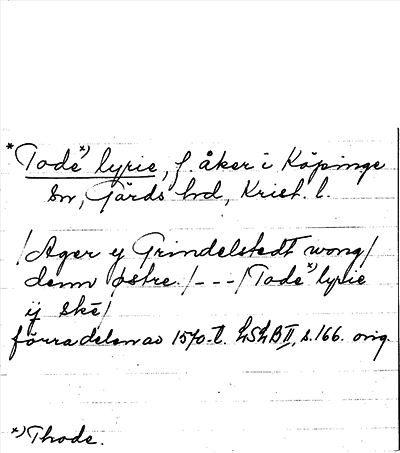 * Tode *) lyrie, f. åker i Köpinge
sn, Gärds hd, Krist. l.
/Ager y Grindelstedt wong/
denn østre./---/Tode *) lyrie
ij skē/
förra delen av 1570-t. LSLB II, s. 166. orig.
*) Thode.